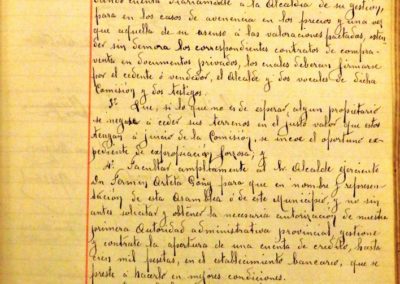 dando cuenta diariamente a la Alcaldía de su gestión,
para en los casos de avenencia en los precios y una vez
que aquella de su asenso á las valoraciones pactadas, exten
der sin demora los correspondientes contratos de compra-
venta en documentos privados, los cuales deberán firmarse
por el cedente ó vendedor, el Alcalde y dos vocales de dicha
Comisión y dos testigos.
3º Que si lo que no es de esperar, algun propietario
se negase á ceder sus terrenos en el justo valor que estos
tengan á juicio de la Comisión, se incoe el oportuno ex-
pediente de expropiación forzosa; y
4º Facultar ampliamente al Sr. Alcalde ejerciente
Dn Fermin Artieta Goñi para que en nombre y represen-
tación de esta Asamblea ó de este Municipio, y no sin
antes solicitar y obtener la necesaria autorización de nuestra
primera Autoridad administrativa provincial, gestione
y contrate la apertura de una cuenta de credito, hasta
mil pesetas, en el establecimiento bancario, que se
preste á hacerlo en mejores condiciones.